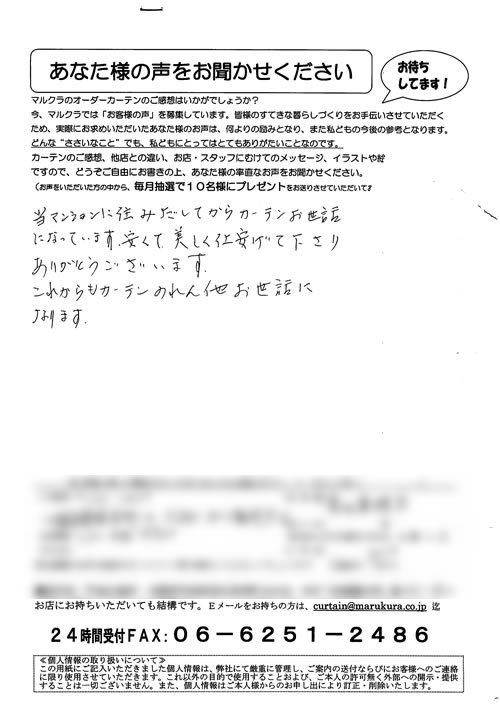 あなた様の声をお聞かせください
お待ち
してます!
マルクラのオーダーカーテンのご感想はいかがでしょうか?
今、マルクラでは「お客様の声」を募集しています。皆様のすてきな暮らしづくりをお手伝いさせていただく
ため、実際にお求めいただいたあなた様のお声は、何よりの励みとなり、また私どもの今後の参考となります。
どんな“ささいなこと”でも、私どもにとってはとてもありがたいことなのです。
カーテンのご感想、他店との違い、お店・スタッフにむけてのメッセージ、イラストや絵
ですので、どうぞご自由にお書きの上、あなた様の率直なお声をお聞かせください。
(お声をいただいた方の中から、毎月抽選で10名様にプレゼントをお送りさせていただいて
当マンションに住みだしてからカーテンお世話
になっています。安くて美しく仕安げて下さり
ありがとうございます。
これからもカーテンのれん他お世話に
なります。
お店にお持ちいただいても結構です。Eメールをお持ちの方は、curtain@marukura.co.jp 迄
24時間受付FAX:06-6251-2486
≪個人情報の取り扱いについて≫
この用紙にご記入いただきました個人情報は、弊社にて厳重に管理し、ご案内の送付ならびにお客様へのご連絡
に限り使用させていただきます。これ以外の目的で使用することおよび、ご本人の許可無く外部への開示・提供
することは一切ございません。また、個人情報はご本人様からのお申し出により訂正・削除いたします。